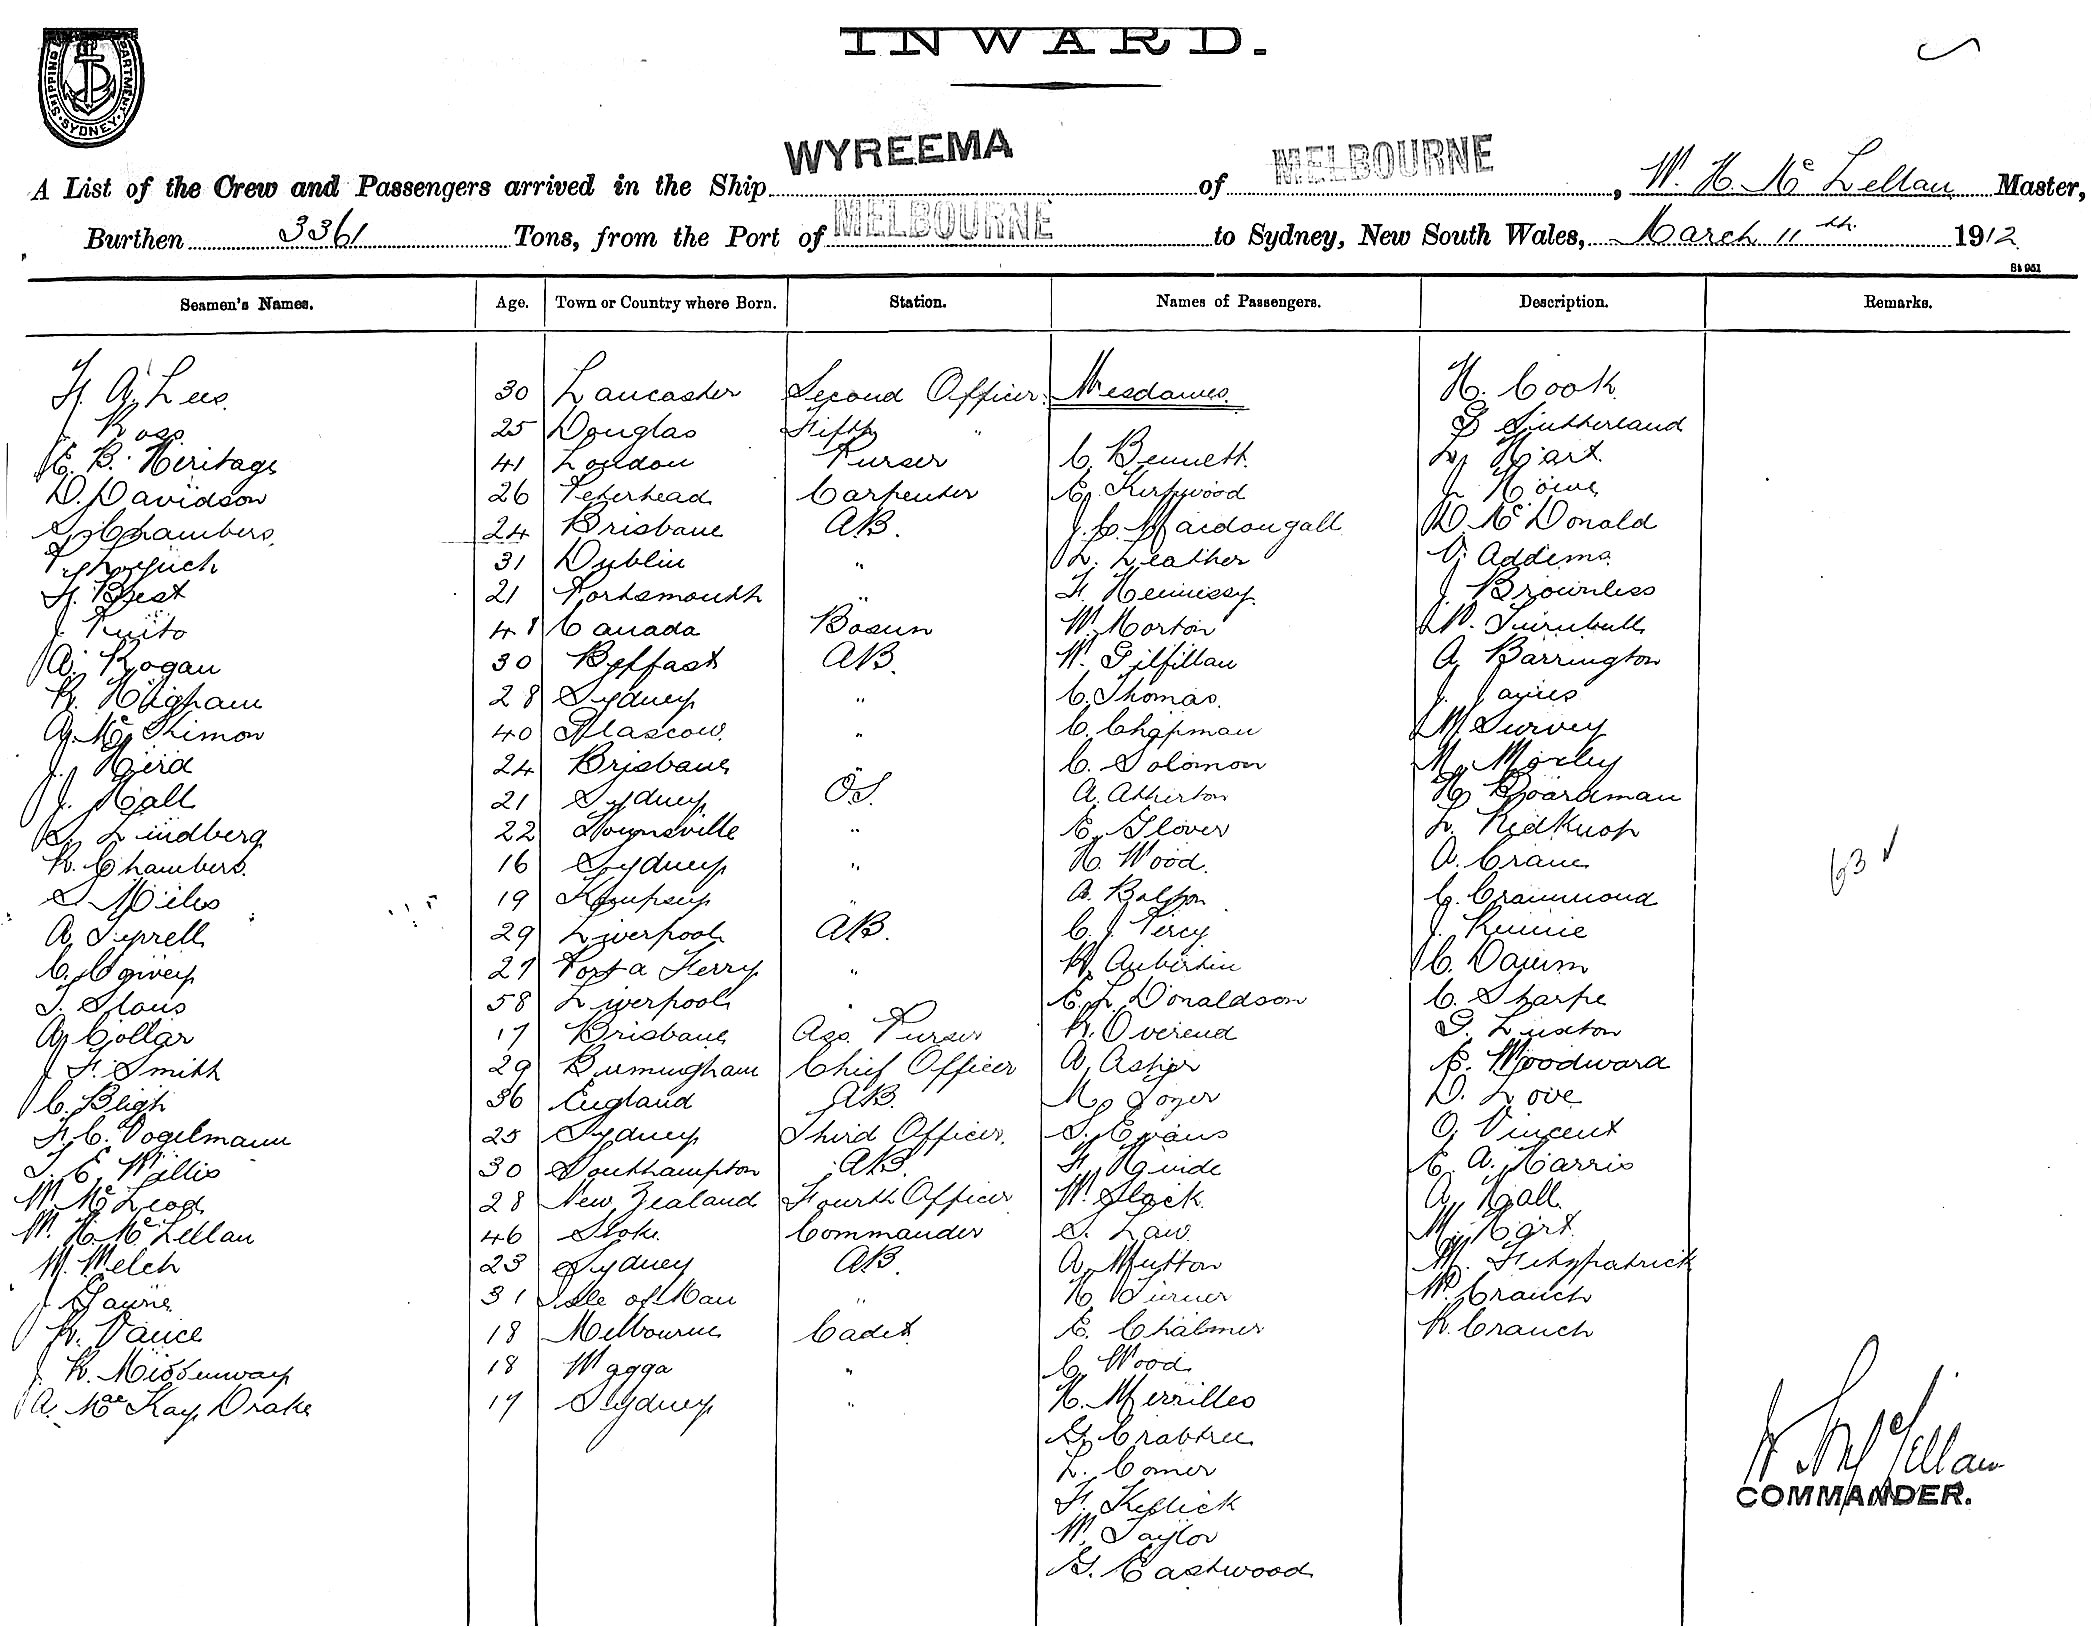 INWARD.
SHIPPING DEPARTMENT SYDNEY
A List of the Crew and Passengers arrived in the Ship WYREEMA of MELBOURNE, W. H. Mc Lellan Master,
Burthen 3361 Tons, from the Port of MELBOURNE to Sydney, New South Wales, March 11th 1912
Seamen's Names. Age. Town or Country where Born. Station. Names of Passengers. Description. Remarks.
F. A. Lees 30 Lancaster Second Officer. Mesdames. H. Cook
J. Ross 25 Douglas Fifth " Sutherland
E. B. Heritage 41 London Purser C. Bennett. L. Hart.
D. Davidson 26 Peterhead Carpenter E. Kirkwood J. Howe
S. Chambers. 24 Brisbane AB. J. C. Macdougall D. Mc Donald
31 Dublin " L. Leather V. Addems.
H. Best 21 Portsmouth " F. Hennissy. J. Brownless
J. 48 Canada Bosun W. Morton W. Turnbull
A. Rogan 30 Belfast AB. W. Gilfillan A. Barrington
R. Higham 28 Sydney " C. Thomas. J.
A. Mc Skimon 40 Glascow. " C. Chapman M. Survey
J. Heird 24 Brisbane " C. Solomon M. Moxley
J. Hall 21 Sydney OS. A. Atherton H. Boardman
Lindberg 22 Townsville " E. Glover L. Redknop
R. Chambers. 16 Sydney " H. Wood. A. Crane
S. Miles 19 Kempsey " A. Bolton C. Crammond 63 ✓
A. Tyrrell 29 Liverpool AB. C. J. Percy J. Rennie
C. Ogivey 27 Porta Ferry " Aubertin C. Daunn
T. Slaus 58 Liverpool " E. L. Donaldson C. Sharpe
A. Gollar 17 Brisbane Ass. Purser R. Overend G. Luxton
J. F. Smith 29 Burmingham Chief Officer A. Asher E. Woodward
C. Bligh 36 England AB. M. Toyer D. Love
F. C. Vogelmann 25 Sydney Third Officer. S. Evans O. Vincent
T. E. Willis 30 Southampton AB. F. Hinde E. A. Harris
W. Mc Leod 28 New Zealand Fourth Officer W. Slack A. Hall
W. H. Mc Lellan 46 Stoke Commander S. Law. M. Hart.
W. Welch 23 Sydney AB. A. Mutton M. Fitzpatrick
J. Gayne 31 Isle of Man " H. Turner W. Crauch
R. Vance 18 Melbourne Cadet E. Chalmer R. Crauch
J. R. Missenway 18 Wagga " C. Wood
A. Mac Kay Drake 17 Sydney " H. Merrilles
G. Crabtree
L. Comer
F. Kellick
W. Taylor
G. Eastwood
W. H. Mc Lellan
COMMANDER.